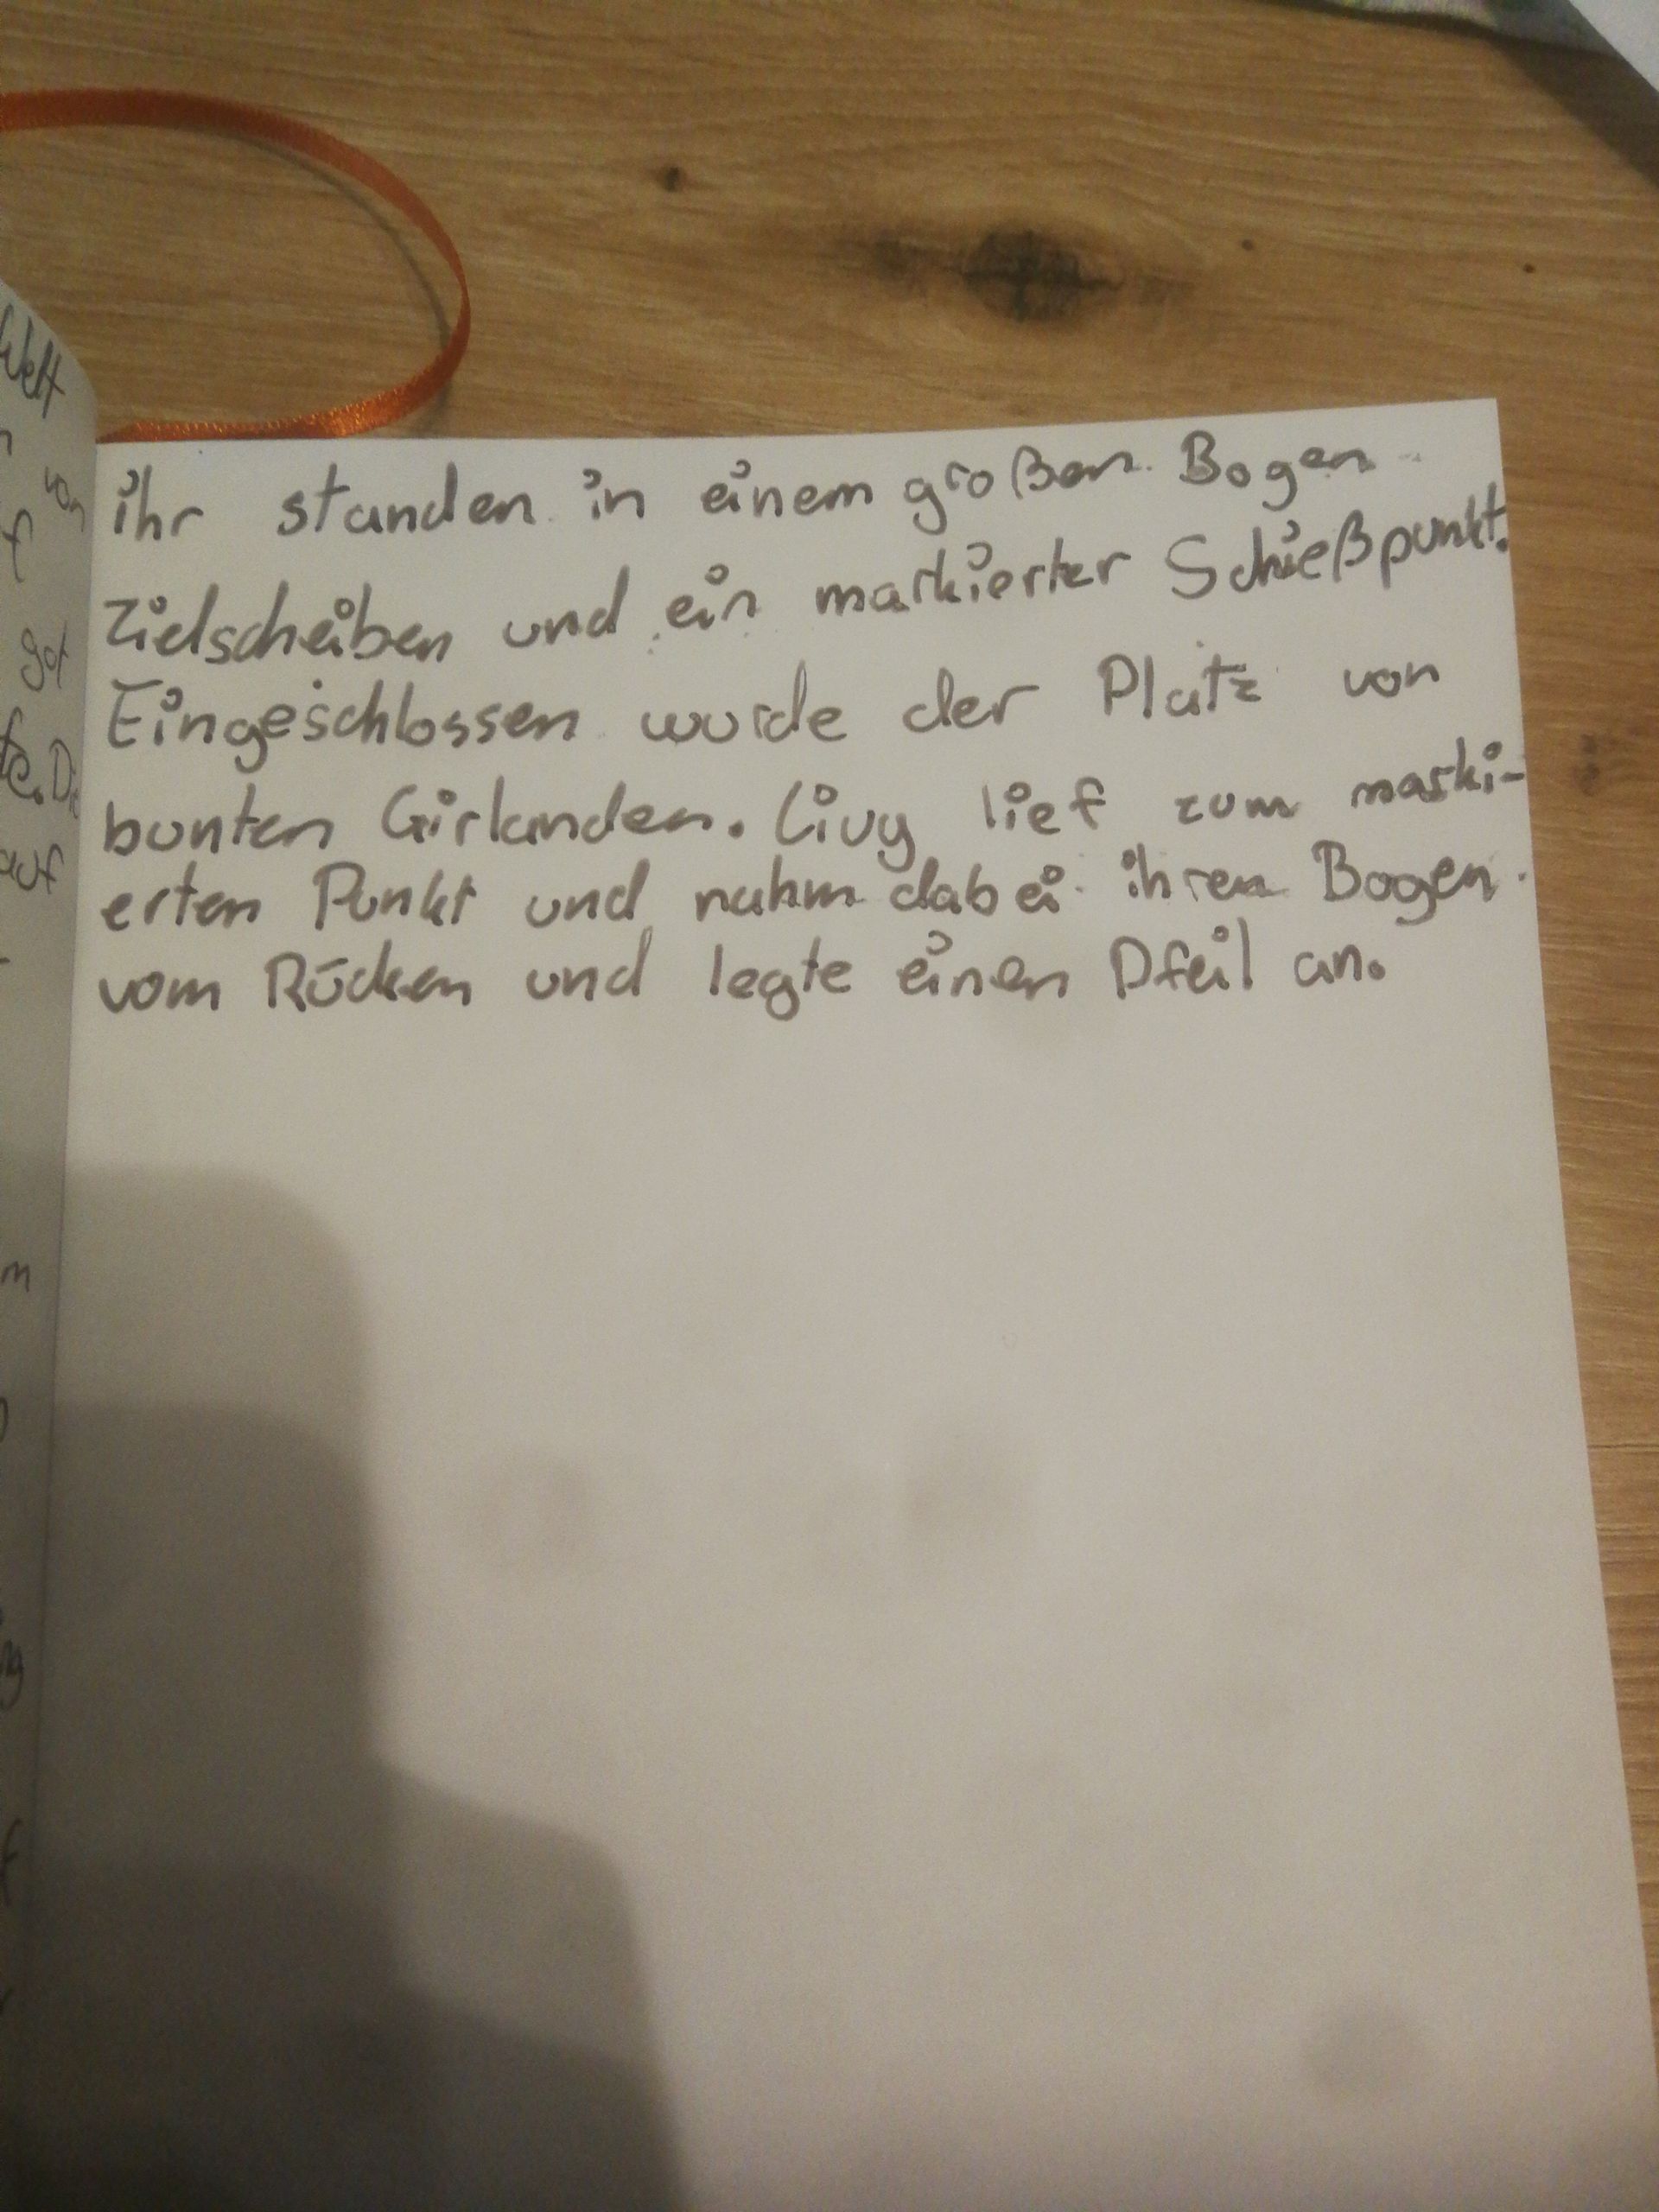 Welt
von
auf
ihr standen in einem großen Bogen
Zielscheiben und ein markierter Schießpunkt.
Eingeschlossen wurde der Platz von
bunten Girlanden. Livy lief zum marki-
erten Punkt und nahm dabei ihren Bogen
vom Rücken und legte einen Pfeil an.